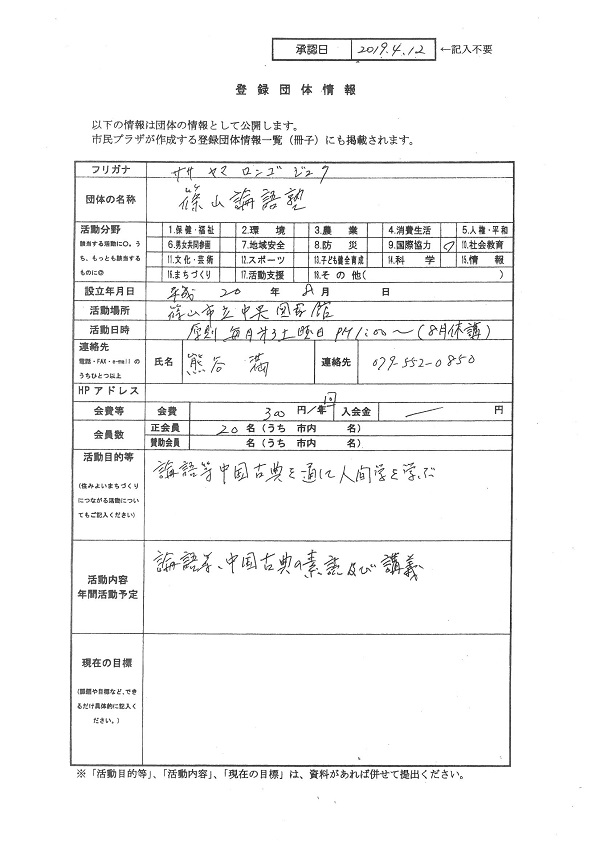 承認日 2019.4.12 ←記入不要
登録団体情報
以下の情報は団体の情報として公開します。
市民プラザが作成する登録団体情報一覧（冊子）にも掲載されます。
フリガナ ササヤマ ロンゴ ジュク
団体の名称 篠山論語塾
活動分野 該当する活動に○。うち、もっとも該当するものに◎
1.保健・福祉 2.環境 3.農業 4.消費生活 5.人権・平和
6.男女共同参画 7.地域安全 8.防災 9.国際協力 ○ 10.社会教育
11.文化・芸術 12.スポーツ 13.子ども健全育成 14.科学 15.情報
16.まちづくり 17.活動支援 18.その他(                )
設立年月日 平成 20 年 8 月 日
活動場所 篠山市立中央図書館
活動日時 原則 毎月第3土曜日 PM1:00〜(8月休講)
連絡先 電話・FAX・e-mailのうちひとつ以上 氏名 熊谷 満 連絡先 079-552-0850
HPアドレス
会費等 会費 300 円/年 回 入会金 ― 円
会員数 正会員 20 名（うち 市内 名）
賛助会員 名（うち 市内 名）
活動目的等 論語等中国古典を通して人間学を学ぶ
(住みよいまちづくり
につながる活動につい
てもご記入ください)
活動内容 論語等、中国古典の素読及び講義
年間活動予定
現在の目標
(課題や目標など、でき
るだけ具体的に記入く
ださい。)
※「活動目的等」、「活動内容」、「現在の目標」は、資料があれば併せて提出ください。